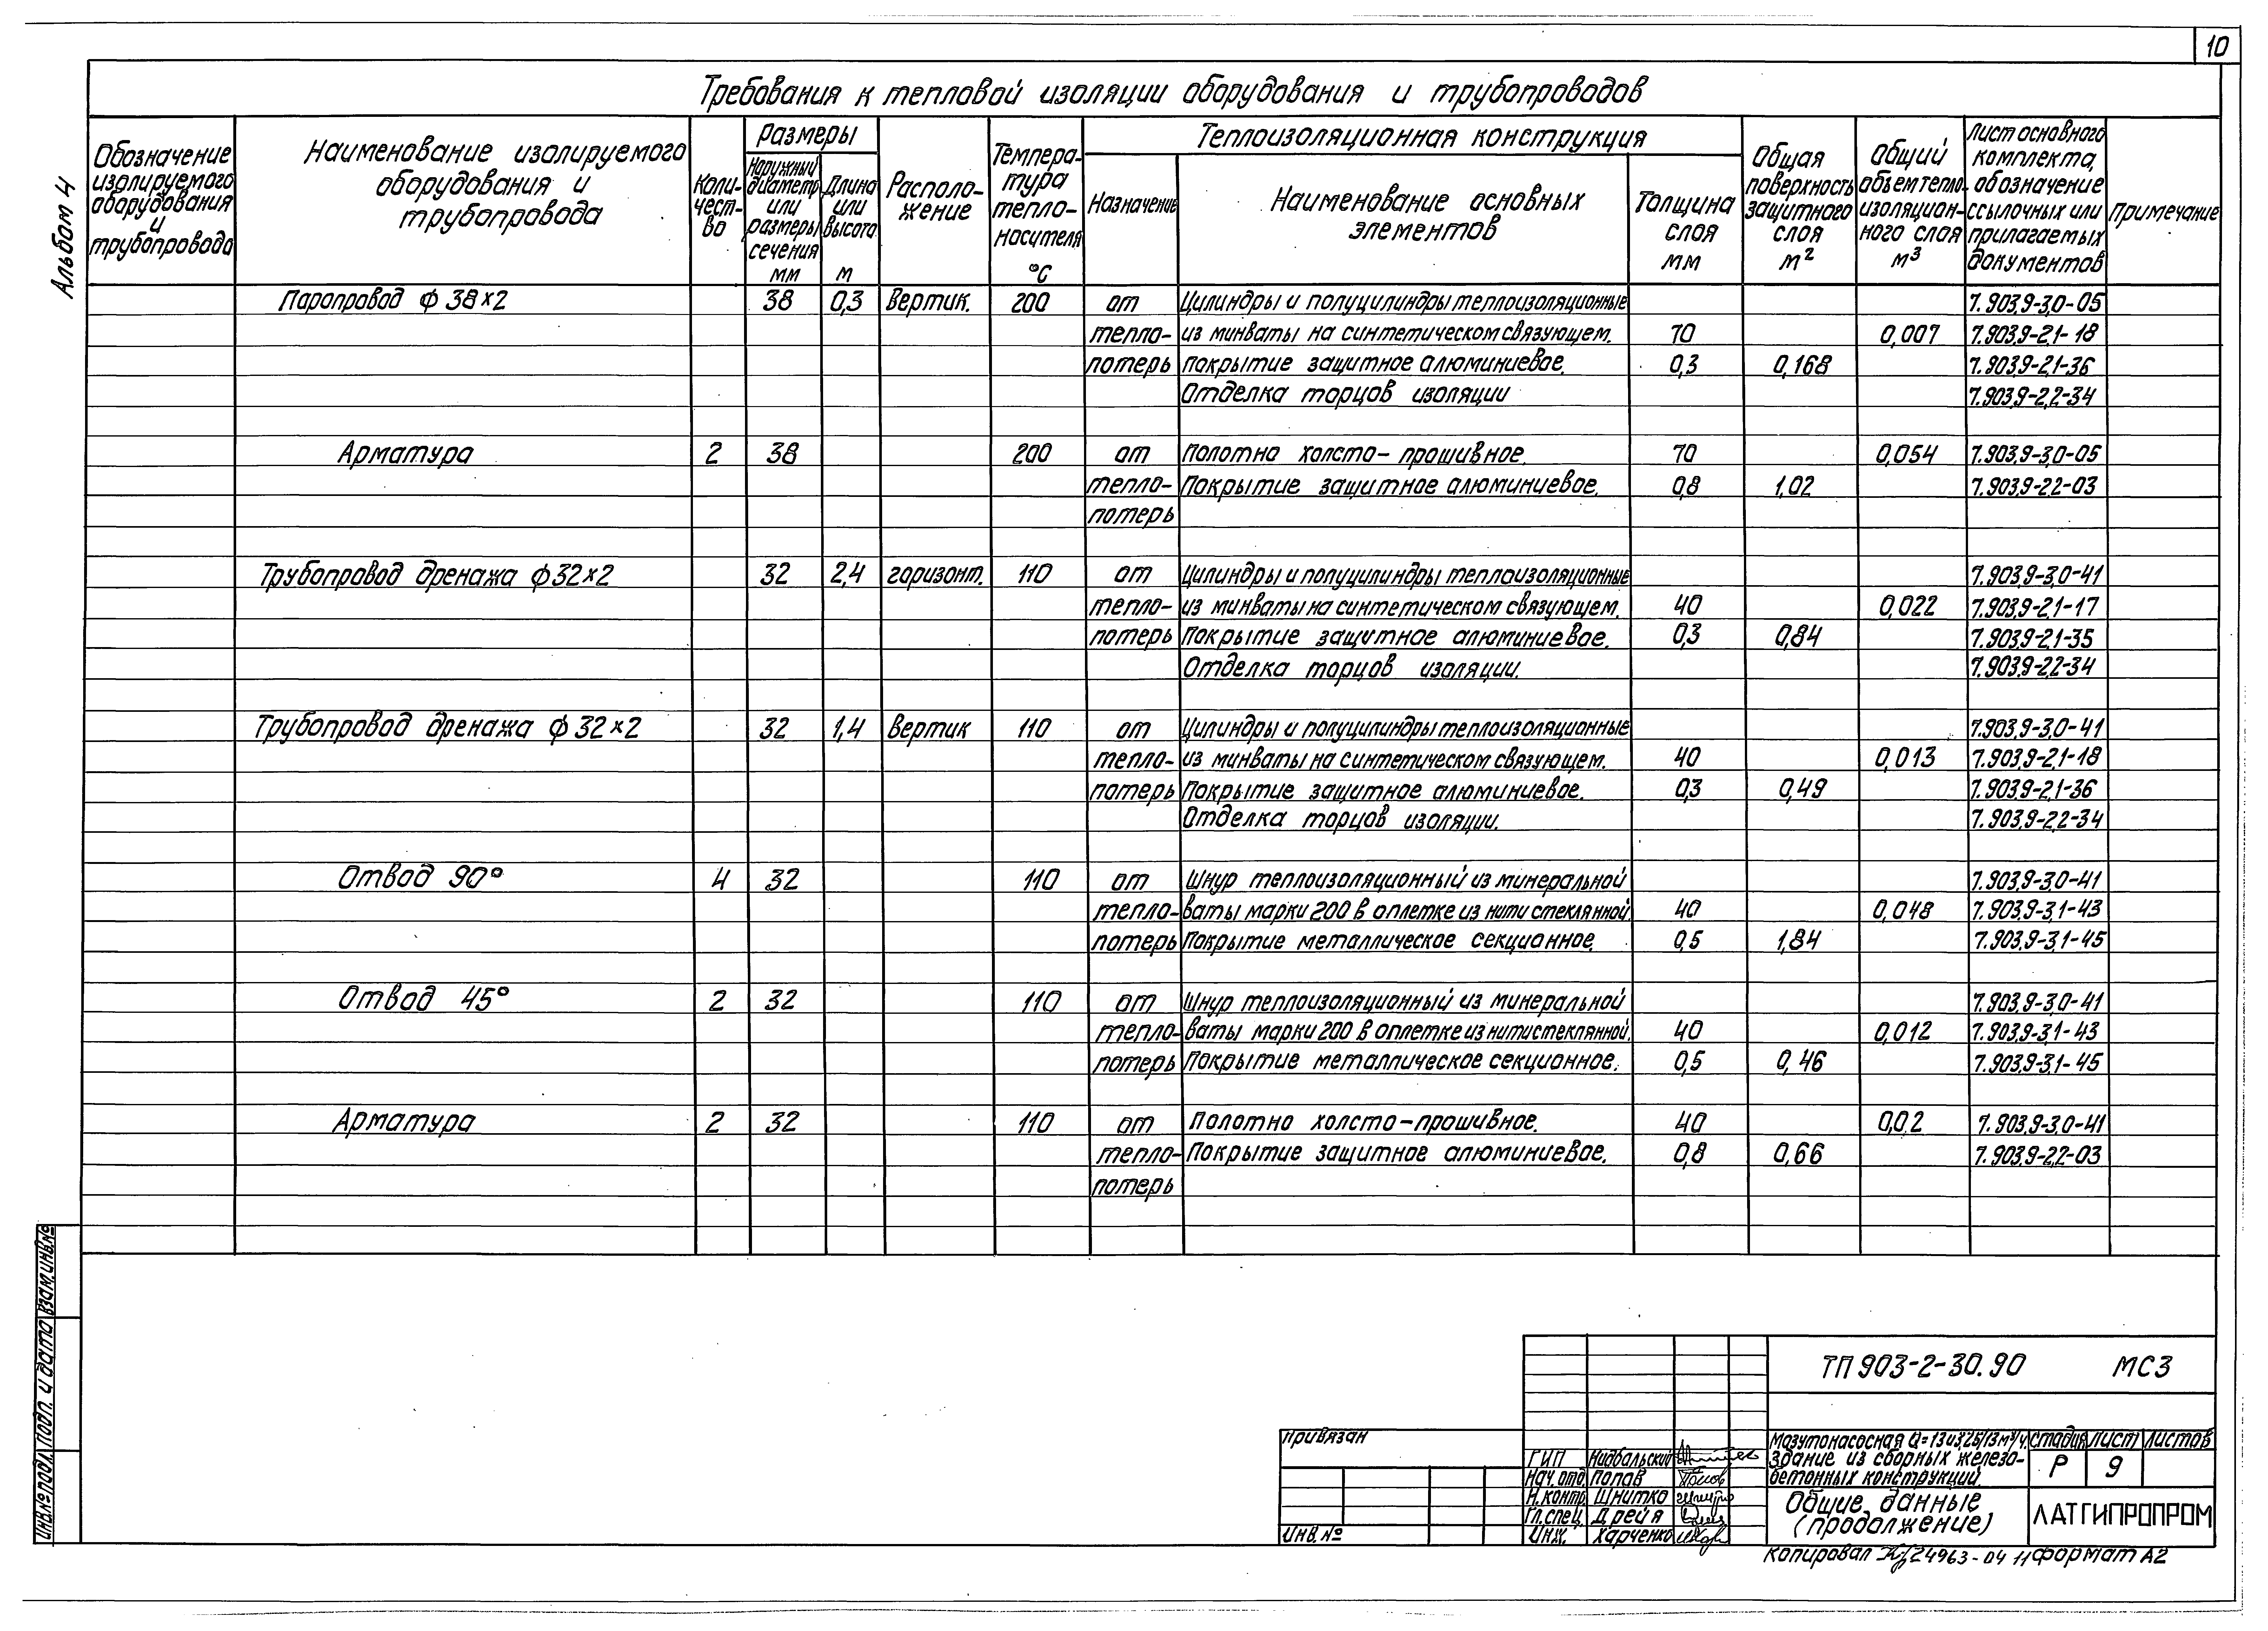 10
Альбом 4
Требования к тепловой изоляции оборудования и трубопроводов
Обозначение изолируемого оборудования и трубопровода
Наименование изолируемого оборудования и трубопровода
Коли-чест-во
Размеры
Наружный диаметр или размеры сечения мм
Длина или высота м
Располо-жение
Темпера-тура тепло-носителя °С
Теплоизоляционная конструкция
Назначение
Наименование основных элементов
Толщина слоя мм
Общая поверхность защитного слоя м²
Общий объем тепло-изоляцион-ного слоя м³
Лист основного комплекта, обозначение ссылочных или прилагаемых документов
Примечание
Паропровод ф 38×2 38 0,3 Вертик. 200 от Цилиндры и полуцилиндры теплоизоляционные 7.903,9-3,0-05
тепло- из минваты на синтетическом связующем. 70 0,007 7.903,9-2,1-18
потерь покрытие защитное алюминиевое. 0,3 0,168 7.903,9-2,1-36
Отделка торцов изоляции 7.903,9-2,2-34
Арматура 2 38 200 от Полотно холсто-прошивное. 70 0,054 7.903,9-3,0-05
тепло- Покрытие защитное алюминиевое. 0,8 1,02 7.903,9-2,2-03
потерь
Трубопровод дренажа ф32×2 32 2,4 горизонт. 110 от Цилиндры и полуцилиндры теплоизоляционные 7.903,9-3,0-41
тепло- из минваты на синтетическом связующем. 40 0,022 7.903,9-2,1-17
потерь Покрытие защитное алюминиевое. 0,3 0,84 7.903,9-2,1-35
Отделка торцов изоляции. 7.903,9-2,2-34
Трубопровод дренажа ф 32×2 32 1,4 Вертик 110 от Цилиндры и полуцилиндры теплоизоляционные 7.903,9-3,0-41
тепло- из минваты на синтетическом связующем. 40 0,013 7.903,9-2,1-18
потерь Покрытие защитное алюминиевое. 0,3 0,49 7.903,9-2,1-36
Отделка торцов изоляции. 7.903,9-2,2-34
Отвод 90° 4 32 110 от Шнур теплоизоляционный из минеральной 7.903,9-3,0-41
тепло- ваты марки 200 в оплетке из нити стеклянной. 40 0,048 7.903,9-3,1-43
потерь Покрытие металлическое секционное. 0,5 1,84 7.903,9-3,1-45
Отвод 45° 2 32 110 от Шнур теплоизоляционный из минеральной 7.903,9-3,0-41
тепло- ваты марки 200 в оплетке из нити стеклянной. 40 0,012 7.903,9-3,1-43
потерь Покрытие металлическое секционное. 0,5 0,46 7.903,9-3,1-45
Арматура 2 32 110 от Полотно холсто-прошивное. 40 0,02 7.903,9-3,0-41
тепло- Покрытие защитное алюминиевое. 0,8 0,66 7.903,9-2,2-03
потерь
Взам.инв.№
Подп. и дата
Инв.№ подл.
Привязан
Инв. №
ТП 903-2-30.90 МС3
ГИП Нидбальский
Нач. отд. Попов
Н. контр. Шнитко
Гл. спец. Дрейя
Инж. Харченко
Мазутонасосная Q=13и3,25/13м³/ч.
Здание из сборных железо-
бетонных конструкций.
Стадия Лист Листов
Р 9
Общие данные
(продолжение)
ЛАТГИПРОПРОМ
Копировал 24963-04 11 формат А2